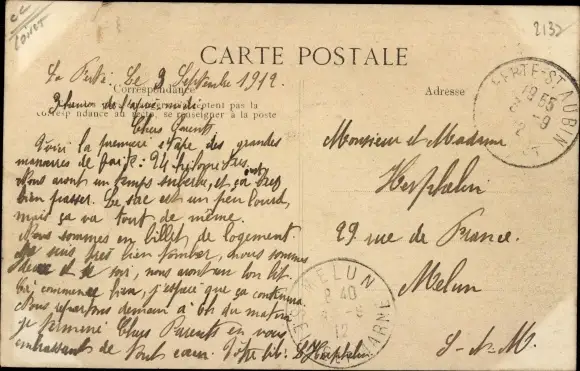 2132
CARTE POSTALE
La Ferté. Le 3 Septembre 1912.
Correspondance
Adresse
3 heures de l'après midi
pas la
correspondance au recto, se renseigner à la poste
Chers Parents
Voici la première étape des grandes
manœuvres de faite : 24 kilomètres.
Nous avons un temps superbe, et ça
bien passer. Le sac est un peu lourd,
mais ça va tout de même.
Nous sommes en billet de logement.
Je suis très bien tombé, nous sommes
deux et ce soir, nous avons un bon lit.
commence bien, j'espère que ça continuera.
Nous repartons demain à 6h du matin
je termine Chers Parents en vous
embrassant de tout cœur. Votre fils : Herphelin
Monsieur et Madame
Herphelin
29 rue de France.
Melun
S-et-M.
FERTE-ST-AUBIN
MELUN
8 40
12
SEINE-ET-MARNE